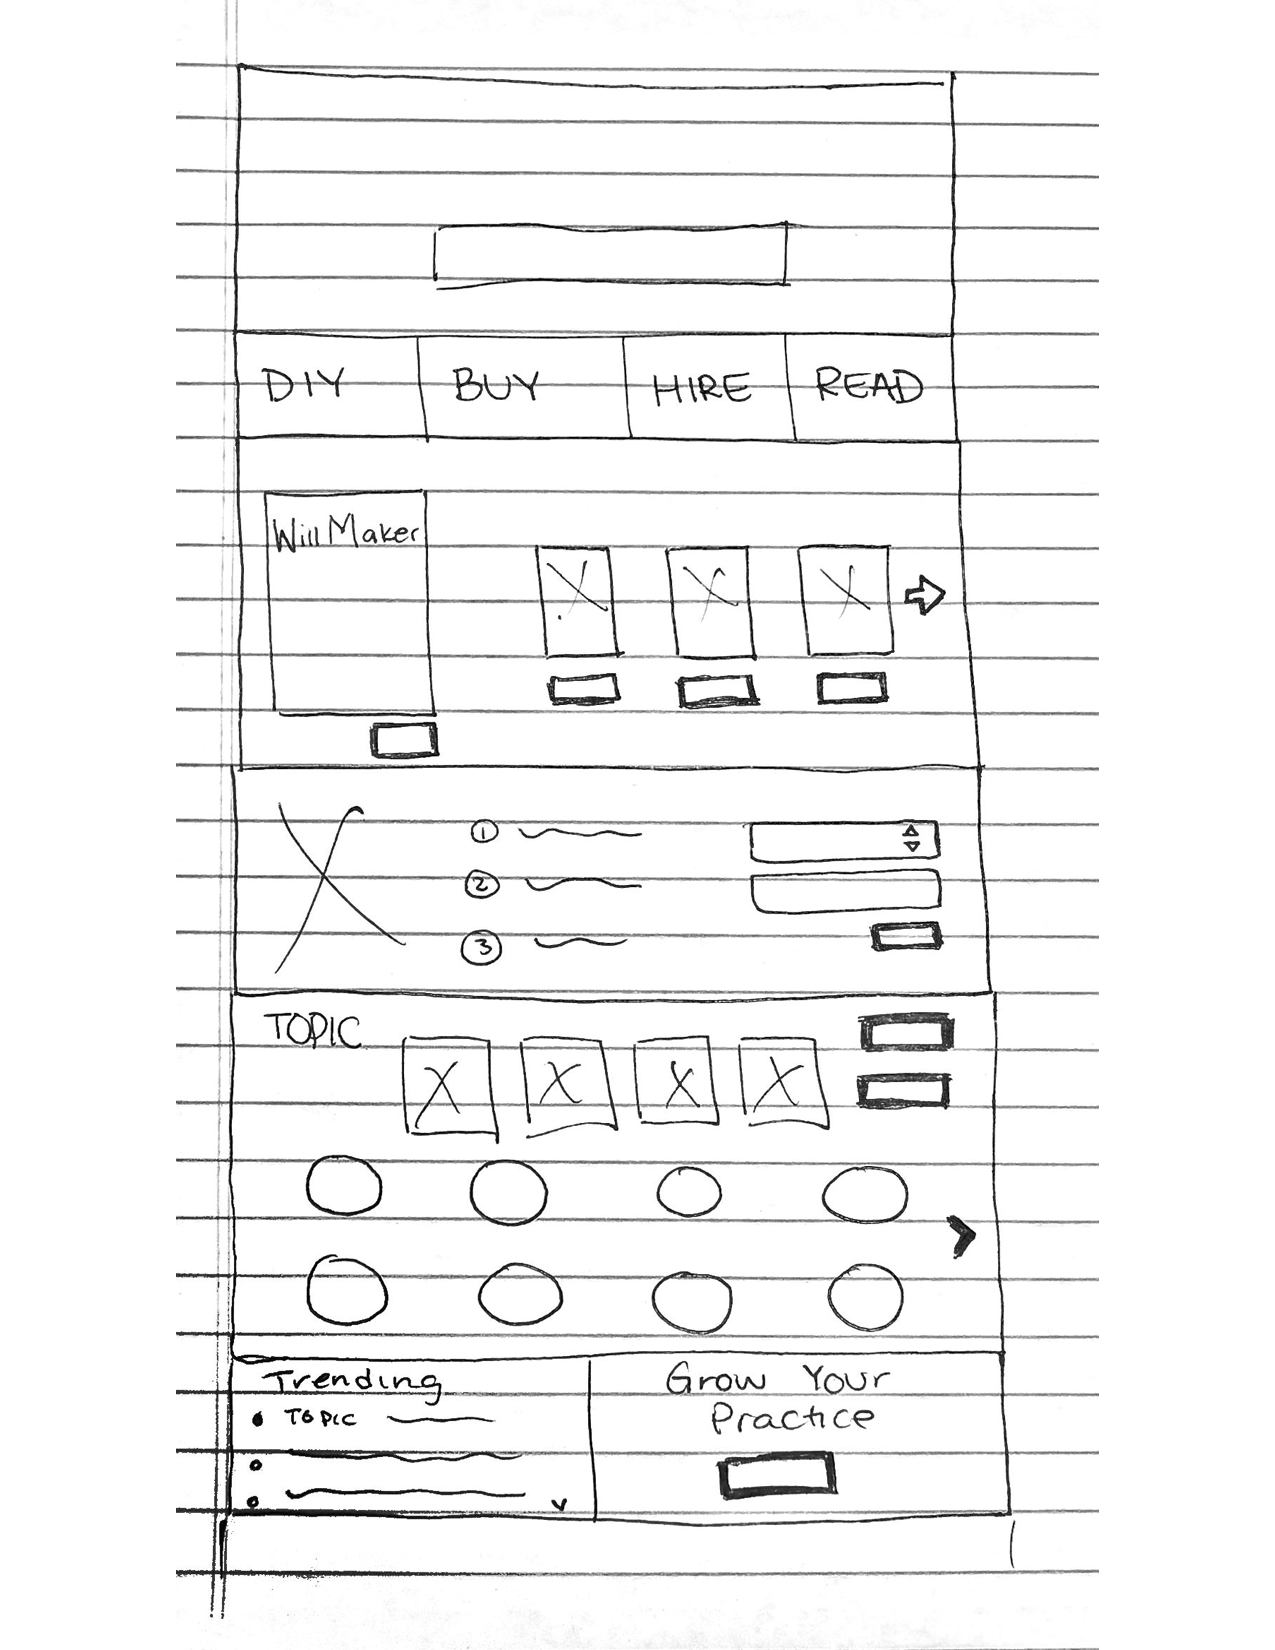 DIY BUY HIRE READ
Will Maker
1
2
3
TOPIC
Trending
TOPIC
Grow Your
Practice